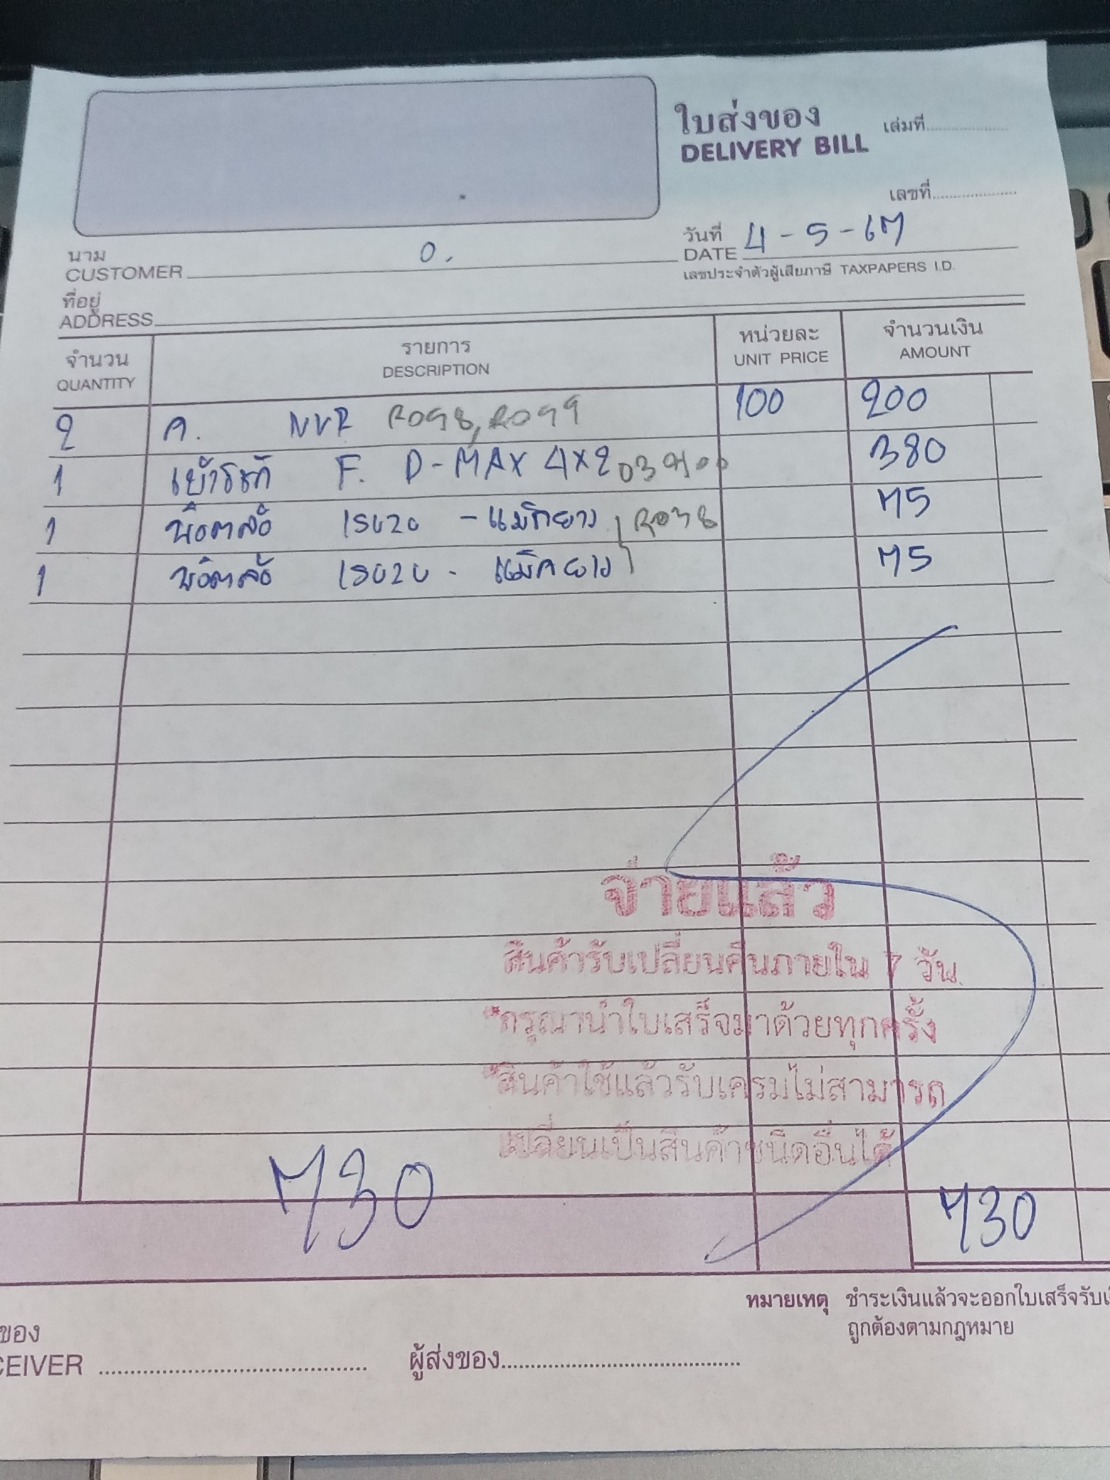 ใบส่งของ เล่มที่
DELIVERY BILL
เลขที่
นาม วันที่ 4-5-67
CUSTOMER O. DATE
เลขประจำตัวผู้เสียภาษี TAXPAPERS I.D.
ที่อยู่
ADDRESS
จำนวน รายการ หน่วยละ จำนวนเงิน
QUANTITY DESCRIPTION UNIT PRICE AMOUNT
2 A. NVR R098, R099 100 200
1 F. D-MAX 4X2 380
1 ISUZU - 75
1 ISUZU - 75
จ่ายแล้ว
สินค้ารับเปลี่ยนคืนภายใน 7 วัน
*กรุณานำใบเสร็จมาด้วยทุกครั้ง
*สินค้าใช้แล้วรับเครมไม่สามารถ
เปลี่ยนเป็นสินค้าชนิดอื่นได้
730 730
หมายเหตุ ชำระเงินแล้วจะออกใบเสร็จรับเ
ของ ถูกต้องตามกฎหมาย
CEIVER ผู้ส่งของ